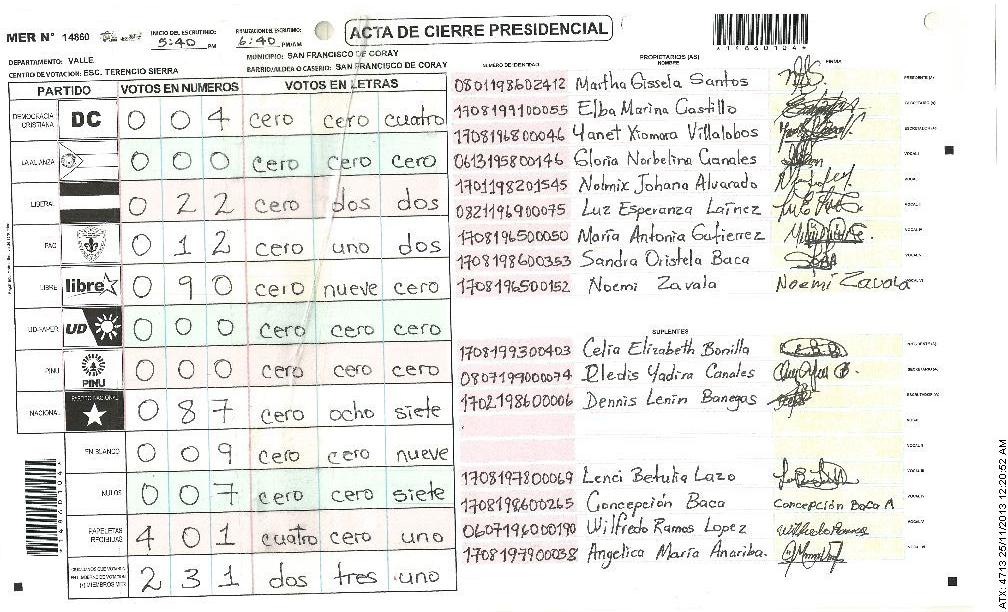 MER N° 14860
INICIO DEL ESCRUTINIO: 5:40 PM
6:40 PM/AM
ACTA DE CIERRE PRESIDENCIAL
*14860104*
DEPARTAMENTO: VALLE.
MUNICIPIO: SAN FRANCISCO DE CORAY
CENTRO DE VOTACION: ESC. TERENCIO SIERRA
BARRIO/ALDEA O CASERIO: SAN FRANCISCO DE CORAY
PARTIDO VOTOS EN NUMEROS VOTOS EN LETRAS
DEMOCRACIA CRISTIANA DC 0 0 4 cero cero cuatro
LA ALIANZA 0 0 0 cero cero cero
LIBERAL 0 2 2 cero dos dos
PAC 0 1 2 cero uno dos
LIBRE libre 0 9 0 cero nueve cero
UD-FAPER UD 0 0 0 cero cero cero
PINU PINU 0 0 0 cero cero cero
NACIONAL PARTIDO NACIONAL 0 8 7 cero ocho siete
EN BLANCO 0 0 9 cero cero nueve
NULOS 0 0 7 cero cero siete
PAPELETAS RECIBIDAS 4 0 1 cuatro cero uno
2 3 1 dos tres uno
NUMERO DE IDENTIDAD PROPIETARIOS (AS) NOMBRE FIRMA
0801198602412 Martha Gissela Santos PRESIDENTE (A)
1708199100055 Elba Marina Castillo SECRETARIO (A)
1708196800046 Yanet Xiomara Villalobos ESCRUTADOR (A)
0613195800146 Gloria Norbelina Canales VOCAL I
1701198201545 Nolmix Johana Alvarado
0821196900075 Luz Esperanza Laínez
1708196500050 María Antonia Gutierrez
1708198600353 Sandra Oristela Baca
1708196500152 Noemi Zavala Noemi Zavala
SUPLENTES
1708199300403 Celia Elizabeth Bonilla
0807199000074 Yadira Canales SECRETARIO (A)
1702198600006 Dennis Lenin Banegas ESCRUTADOR (A)
1708197800069 Lenci Betulia Lazo
1708198600265 Concepción Baca Concepción Baca A
0607196000190 Wilfredo Ramos Lopez Wilfredo Ramos
1708197900038 Angelica María Anariba.
ATX: 4713 25/11/2013 12:20:52 AM